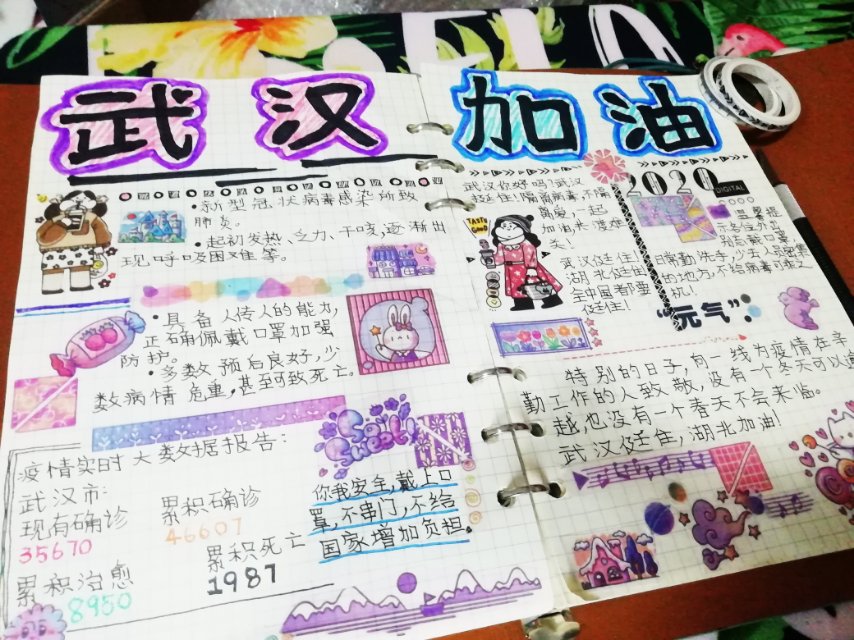 武汉加油
·新型冠状病毒感染所致
肺炎。
·起初发热、乏力、干咳,逐渐出
现呼吸困难等。
·具备人传人的能力,
正确佩戴口罩加强
防护。
·多数预后良好,少
数病情危重,甚至可致死亡。
Sweet
疫情实时大数据报告:
武汉市:
现有确诊
35670
累积确诊
46607
累积治愈
8950
累积死亡
1987
你我安全,戴上口
罩,不串门,不给
国家增加负担。
武汉你好吗?武汉
挺住!隔离病毒,不隔
离爱,一起
加油来渡难
关!
武汉挺住!
湖北挺住!
全中国都要
挺住!
2020
DIGITAL
温馨提
示:
别忘戴口罩
日常勤洗手,少去人员密集
的地方,不给病毒可乘之
机!
“元气”
特别的日子,向一线为疫情在辛
勤工作的人致敬,没有一个冬天可以逾
越也没有一个春天不会来临。
武汉挺住,湖北加油!